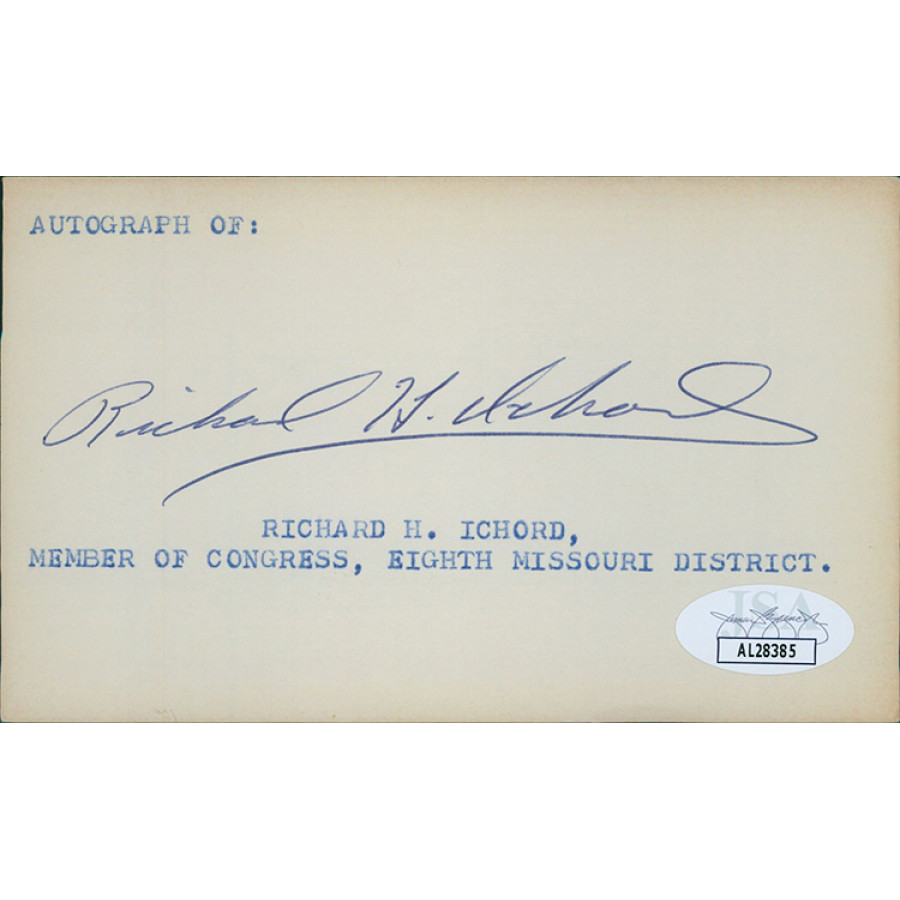 AUTOGRAPH OF:
Richard H. Ichord
RICHARD H. ICHORD,
MEMBER OF CONGRESS, EIGHTH MISSOURI DISTRICT.
JSA
AL28385